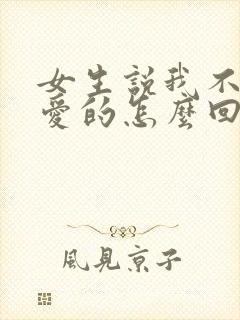 女生説我不
愛的怎麼回
風見京子